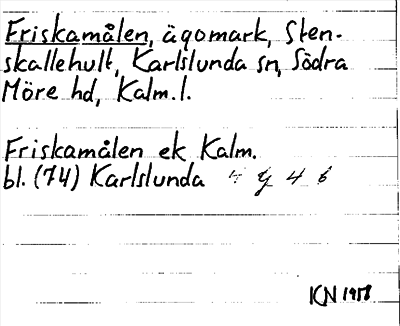 Friskamålen, ägomark, Sten-
skallehult, Karlslunda sn, Södra
Möre hd, Kalm. l.
Friskamålen ek Kalm.
bl. (74) Karlslunda 4 G 4 b
KN 1958